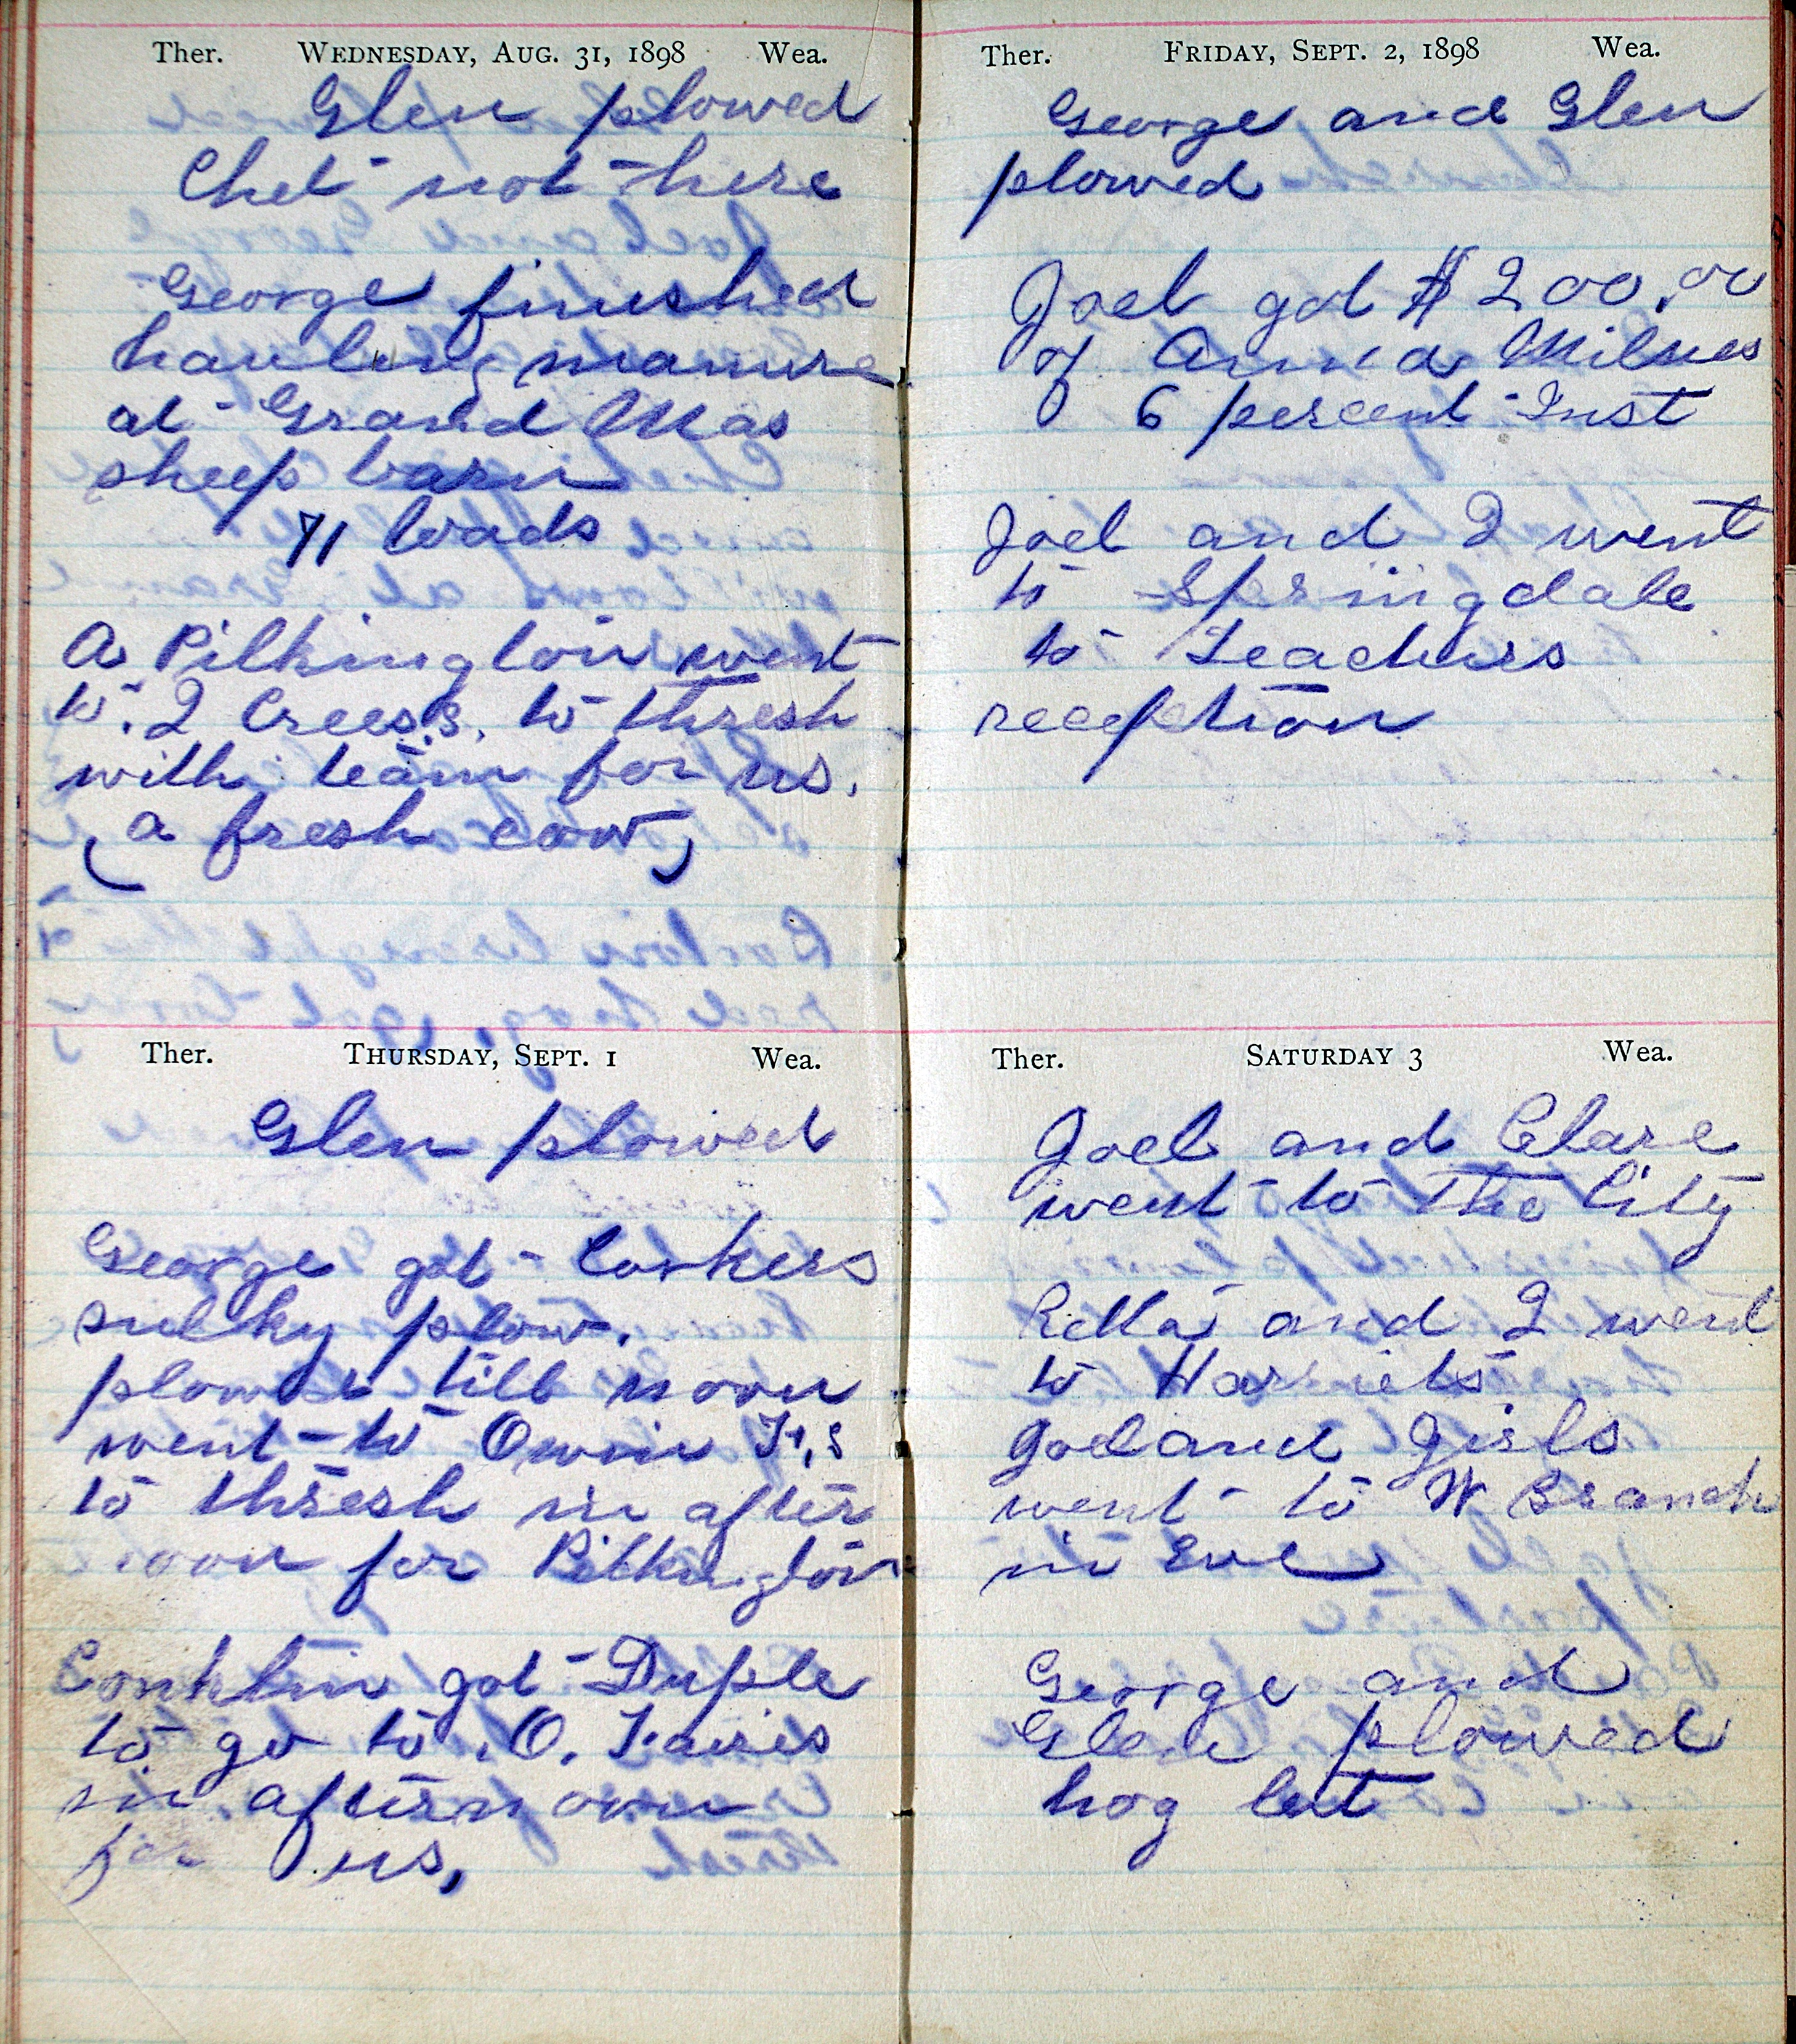 Ther. Wednesday, Aug. 31, 1898 Wea.
Glen plowed
Chet not here
George finished
hauling manure
at Grand Mas
sheep barn
71 loads
A Pilkington went
to J Creess, to thresh
with team for us.
(a fresh cow)
Ther. Thursday, Sept. 1 Wea.
Glen plowed
George got Corkers
sulky plow.
plowed till noon
went to Owin F,s
to thresh in after
noon for Pilkington
Conklin got Duple
to go to O. Fawies
in afternoon
for us,
Ther. Friday, Sept. 2, 1898 Wea.
George and Glen
plowed
Joel got $200.00
of Anna Milnes
6 percent Inst
Joel and I went
to Springdale
to Teachers
reception
Ther. Saturday 3 Wea.
Joel and Clare
went to The City
Retta and I went
to Harriets
Joel and girls
went to W Branch
in Eve
George and
Glen plowed
hog lot